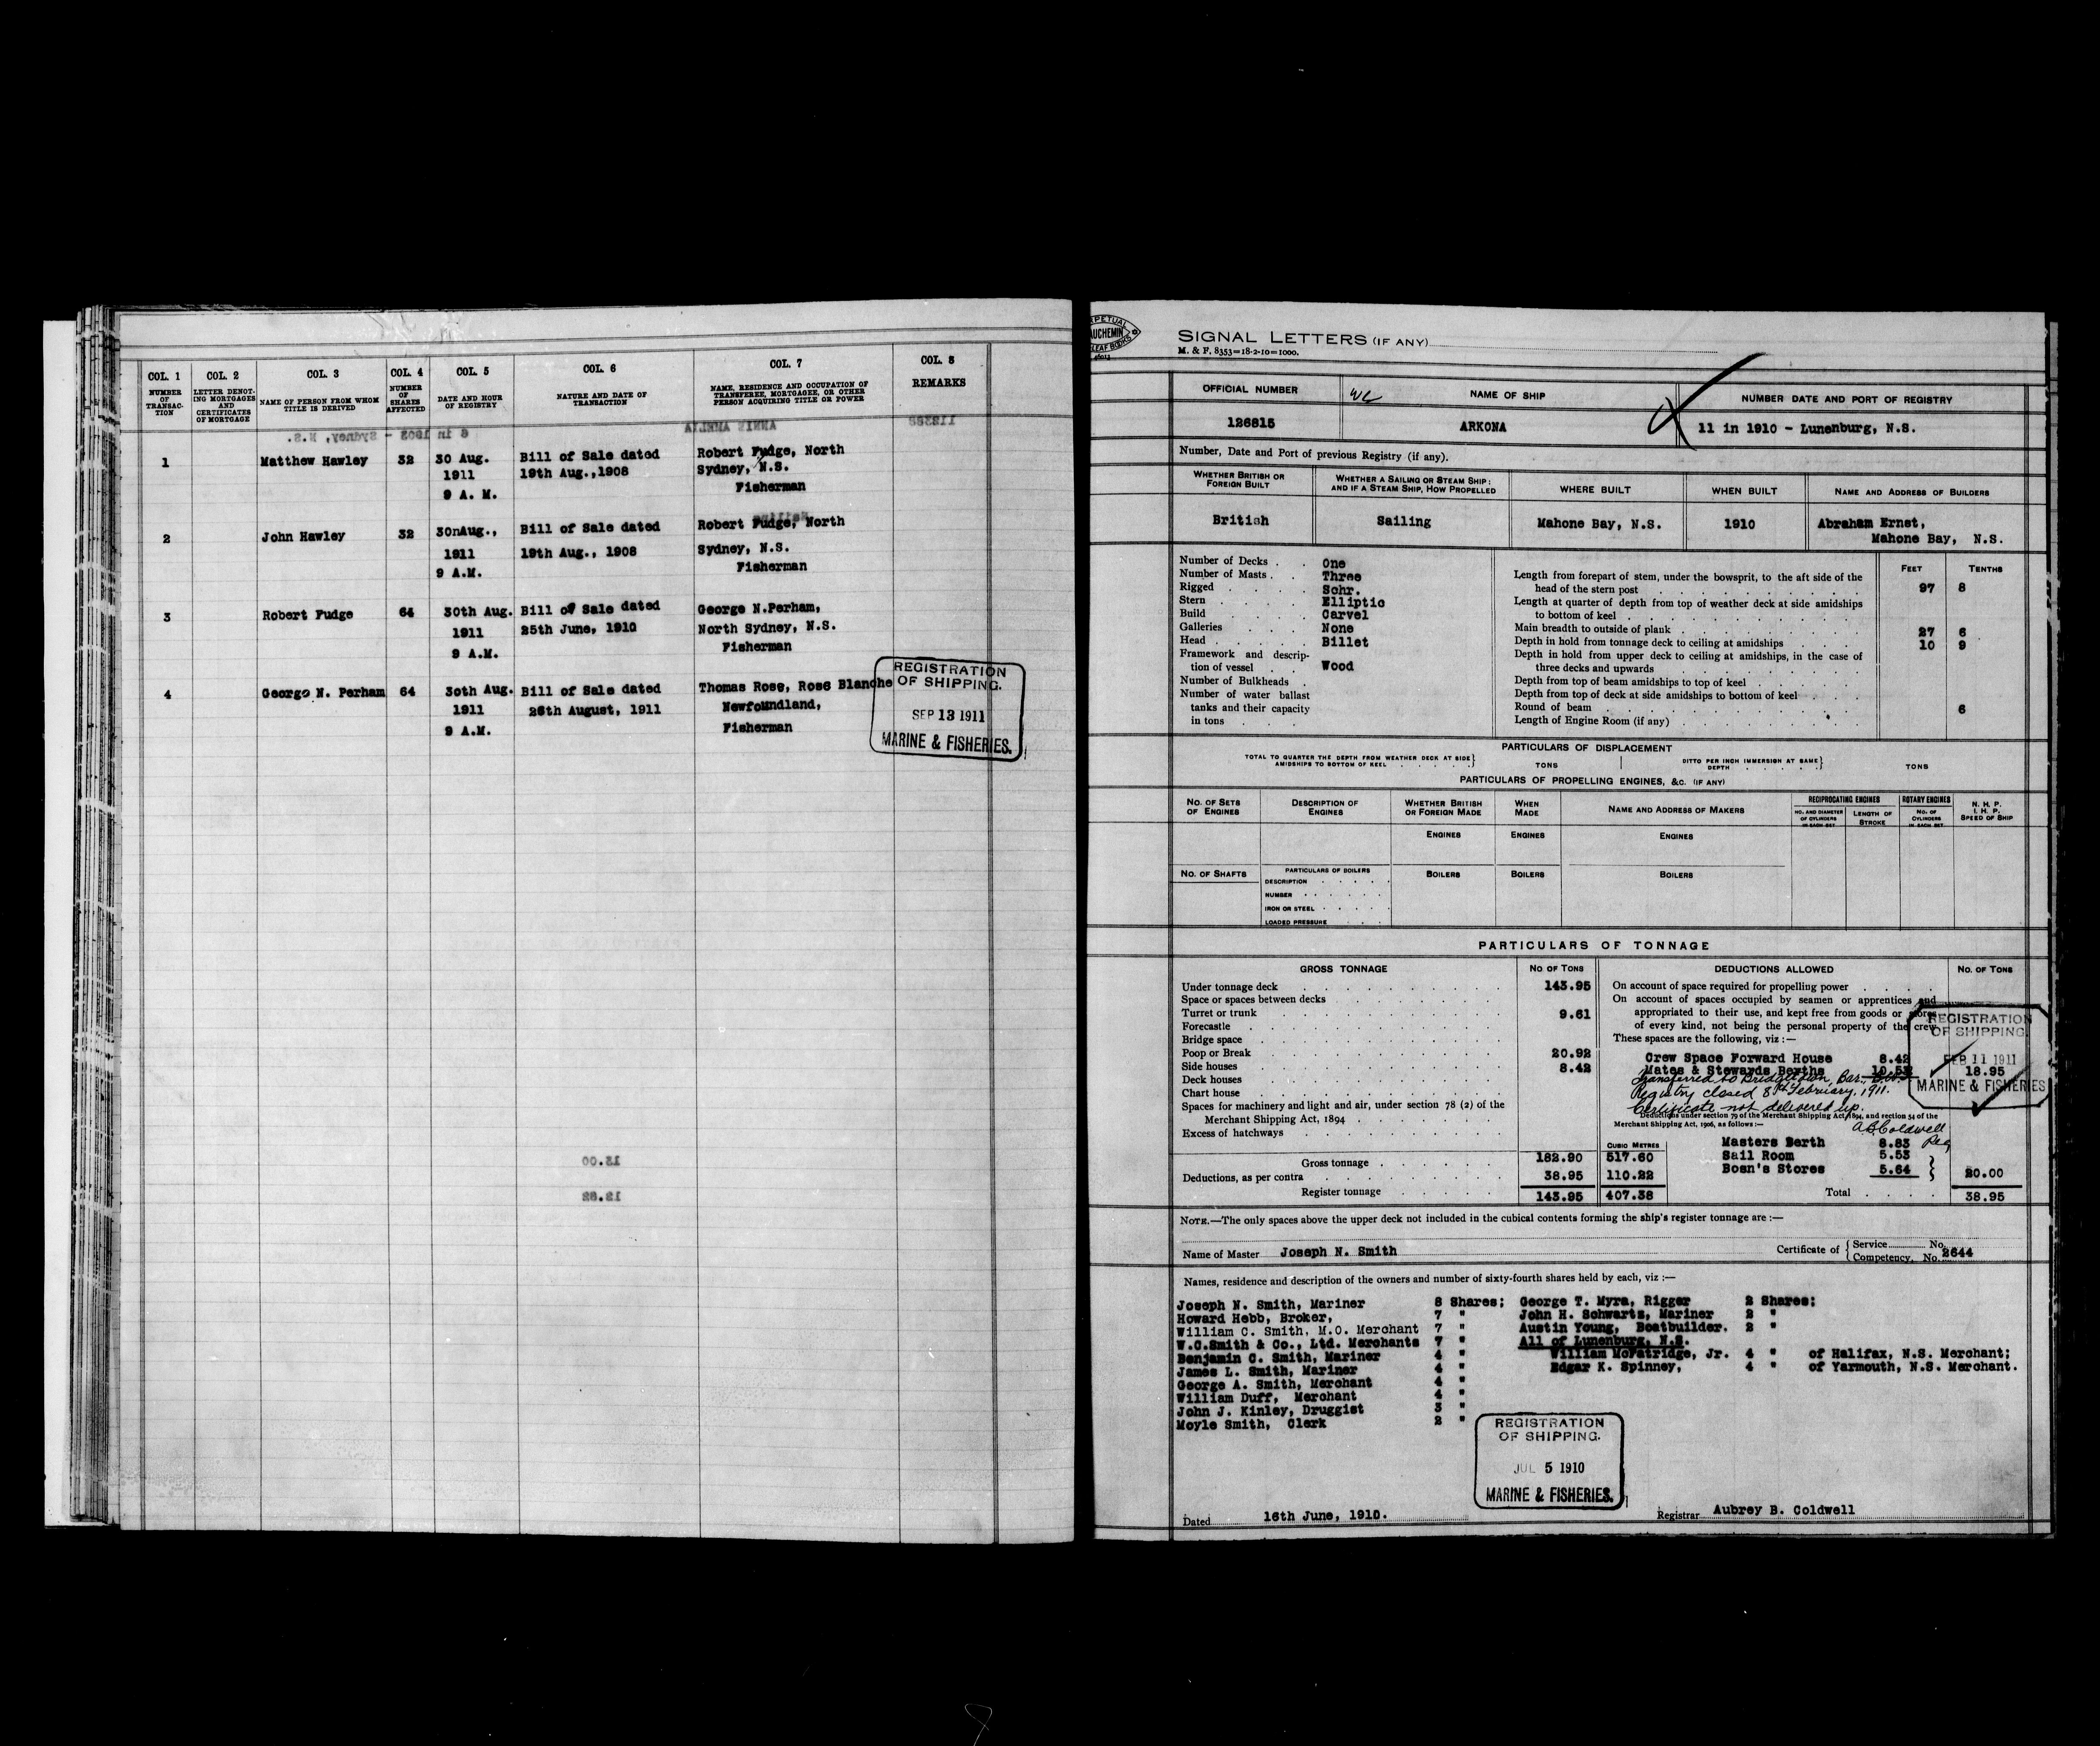 COL. 1 COL. 2 COL. 3 COL. 4 COL. 5 COL. 6 COL. 7 COL. 8
NUMBER OF TRANSAC-TION
LETTER DENOT-ING MORTGAGES AND CERTIFICATES OF MORTGAGE
NAME OF PERSON FROM WHOM TITLE IS DERIVED
NUMBER OF SHARES AFFECTED
DATE AND HOUR OF REGISTRY
NATURE AND DATE OF TRANSACTION
NAME, RESIDENCE AND OCCUPATION OF TRANSFEREE, MORTGAGEE, OR OTHER PERSON ACQUIRING TITLE OR POWER
REMARKS
1 Matthew Hawley 32 30 Aug. Bill of Sale dated Robert Fudge, North
1911 19th Aug.,1908 Sydney, N.S.
9 A. M. Fisherman
2 John Hawley 32 30nAug., Bill of Sale dated Robert Fudge, North
1911 19th Aug., 1908 Sydney, N.S.
9 A.M. Fisherman
3 Robert Fudge 64 30th Aug. Bill of Sale dated George N.Perham,
1911 25th June, 1910 North Sydney, N.S.
9 A.M. Fisherman
4 George N. Perham 64 30th Aug. Bill of Sale dated Thomas Rose, Rose Blanche
1911 26th August, 1911 Newfoundland,
9 A.M. Fisherman
REGISTRATION
OF SHIPPING.
SEP 13 1911
MARINE & FISHERIES.
SIGNAL LETTERS (IF ANY)
M. & F. 8353=18-2-10=1000.
OFFICIAL NUMBER NAME OF SHIP NUMBER DATE AND PORT OF REGISTRY
126815 ARKONA 11 in 1910 - Lunenburg, N.S.
Number, Date and Port of previous Registry (if any).
WHETHER BRITISH OR FOREIGN BUILT
WHETHER A SAILING OR STEAM SHIP; AND IF A STEAM SHIP, HOW PROPELLED
WHERE BUILT WHEN BUILT NAME AND ADDRESS OF BUILDERS
British Sailing Mahone Bay, N.S. 1910 Abraham Ernst,
Mahone Bay, N.S.
Number of Decks . . One
Number of Masts . . Three
Rigged Schr.
Stern Elliptic
Build Carvel
Galleries None
Head Billet
Framework and descrip-
tion of vessel Wood
Number of Bulkheads
Number of water ballast
tanks and their capacity
in tons
FEET TENTHS
Length from forepart of stem, under the bowsprit, to the aft side of the
head of the stern post 97 8
Length at quarter of depth from top of weather deck at side amidships
to bottom of keel
Main breadth to outside of plank 27 6
Depth in hold from tonnage deck to ceiling at amidships 10 9
Depth in hold from upper deck to ceiling at amidships, in the case of
three decks and upwards
Depth from top of beam amidships to top of keel
Depth from top of deck at side amidships to bottom of keel
Round of beam 6
Length of Engine Room (if any)
PARTICULARS OF DISPLACEMENT
TOTAL TO QUARTER THE DEPTH FROM WEATHER DECK AT SIDE AMIDSHIPS TO BOTTOM OF KEEL TONS DITTO PER INCH IMMERSION AT SAME DEPTH TONS
PARTICULARS OF PROPELLING ENGINES, &C. (IF ANY)
NO. OF SETS OF ENGINES
DESCRIPTION OF ENGINES
WHETHER BRITISH OR FOREIGN MADE
WHEN MADE
NAME AND ADDRESS OF MAKERS
RECIPROCATING ENGINES
NO. AND DIAMETER OF CYLINDERS IN EACH SET
LENGTH OF STROKE
ROTARY ENGINES
NO. OF CYLINDERS IN EACH SET
N. H. P.
I. H. P.
SPEED OF SHIP
ENGINES ENGINES ENGINES
NO. OF SHAFTS PARTICULARS OF BOILERS BOILERS BOILERS BOILERS
DESCRIPTION
NUMBER
IRON OR STEEL
LOADED PRESSURE
PARTICULARS OF TONNAGE
GROSS TONNAGE NO OF TONS DEDUCTIONS ALLOWED NO. OF TONS
Under tonnage deck 143.95
Space or spaces between decks
Turret or trunk 9.61
Forecastle
Bridge space
Poop or Break 20.92
Side houses 8.42
Deck houses
Chart house
Spaces for machinery and light and air, under section 78 (2) of the
Merchant Shipping Act, 1894
Excess of hatchways
CUBIC METRES
Gross tonnage 182.90 517.60
Deductions, as per contra 38.95 110.22
Register tonnage 143.95 407.38
On account of space required for propelling power
On account of spaces occupied by seamen or apprentices and
appropriated to their use, and kept free from goods or stores
of every kind, not being the personal property of the crew
These spaces are the following, viz :—
Crew Space Forward House 8.42
Mates & Stewards Berths 10.53 18.95
Transferred to Bridgetown, Bar.
Registry closed 8th February, 1911.
Certificate not delivered up.
A B Coldwell
Reg
REGISTRATION
OF SHIPPING.
FEB 11 1911
MARINE & FISHERIES
Deductions under section 79 of the Merchant Shipping Act, 1894, and section 54 of the
Merchant Shipping Act, 1906, as follows:—
Masters Berth 8.83
Sail Room 5.53
Bosn's Stores 5.64 20.00
Total 38.95
NOTE.—The only spaces above the upper deck not included in the cubical contents forming the ship's register tonnage are :—
Name of Master Joseph N. Smith Certificate of Service No.
Competency, No. 2644
Names, residence and description of the owners and number of sixty-fourth shares held by each, viz :—
Joseph N. Smith, Mariner 8 Shares; George T. Myra, Rigger 2 Shares;
Howard Hebb, Broker, 7 " John H. Schwartz, Mariner 2 "
William C. Smith, M.O. Merchant 7 " Austin Young, Boatbuilder. 2 "
W.C.Smith & Co., Ltd. Merchants 7 " All of Lunenburg, N.S.
Benjamin C. Smith, Mariner 4 " William McFatridge, Jr. 4 " of Halifax, N.S. Merchant;
James L. Smith, Mariner 4 " Edgar K. Spinney, 4 " of Yarmouth, N.S. Merchant.
George A. Smith, Merchant 4 "
William Duff, Merchant 4 "
John J. Kinley, Druggist 3 "
Moyle Smith, Clerk 2 "
REGISTRATION
OF SHIPPING.
JUL 5 1910
MARINE & FISHERIES.
Dated 16th June, 1910. Registrar Aubrey B. Coldwell